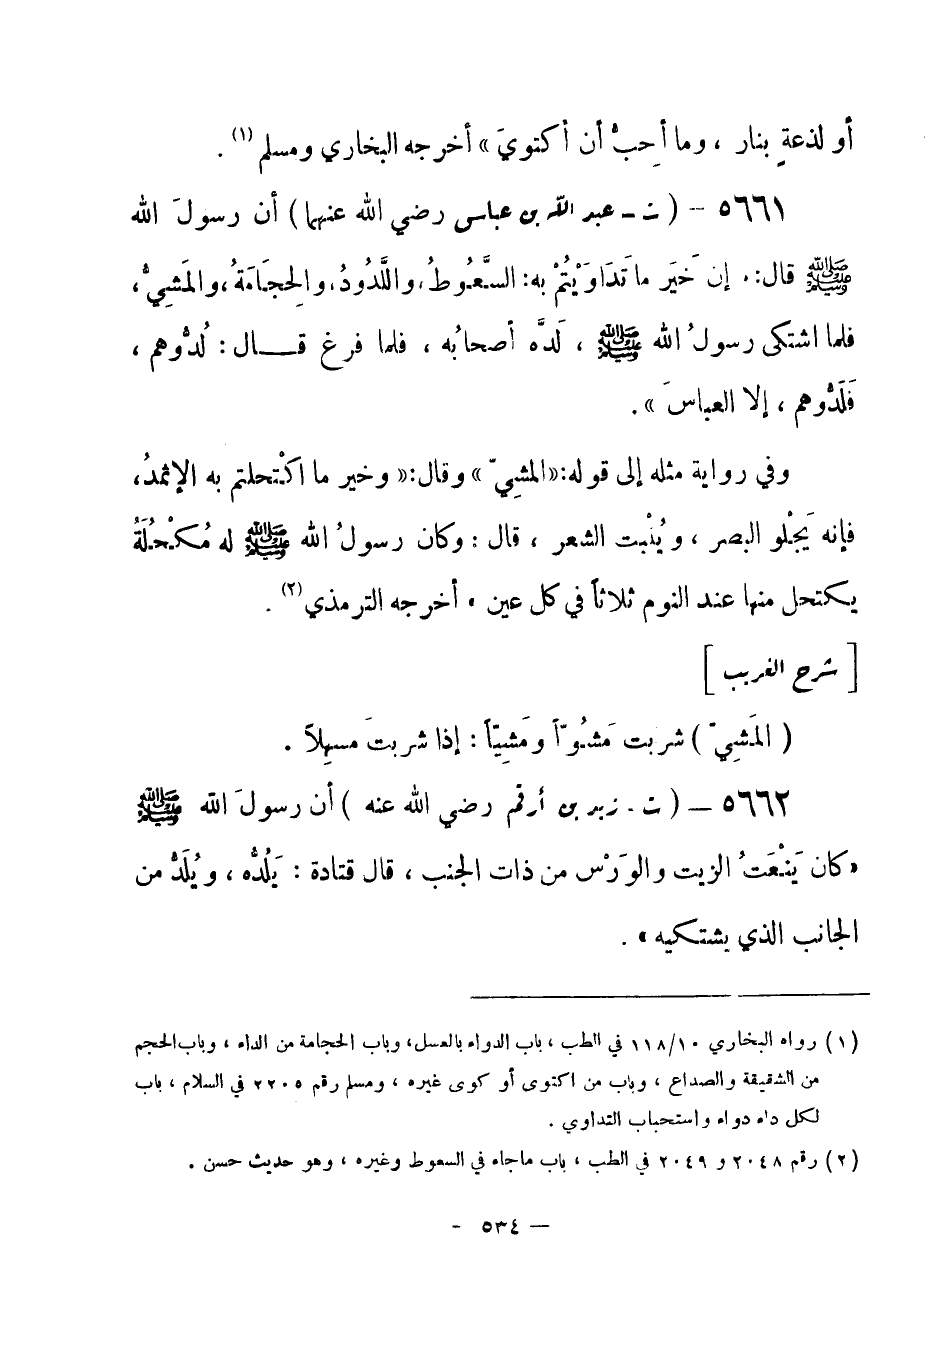 أو لذعةٍ بنار ، وما أحِبُّ أن أكتويَ » أخرجه البخاري ومسلم (١) .
٥٦٦١ - ( ت - عبد الله بن عباس رضي الله عنهما ) أن رسولَ الله
ﷺ قال: « إن خَيرَ ما تَدَاوَيْتُمْ به: السَّعُوطُ، واللَّدُودُ، والحِجَامَةُ، والمَشِيُّ،
فلما اشتكى رسولُ الله ﷺ ، لَدَّه أصحابُه ، فلما فرغ قـــال : لُدُّوهم ،
فَلَدُّوهم ، إلا العباسَ » .
وفي رواية مثله إلى قوله:«المَشِيّ » وقال:« وخير ما اكْتحلتم به الإثمدُ،
فإنه يَجْلو البصر ، ويُنْبت الشعر ، قال : وكان رسولُ الله ﷺ له مُكْحُلَةُ
يكتحل منها عند النوم ثلاثاً في كل عين » أخرجه الترمذي (٢) .
[ شرح الغريب ]
( المَشِيّ ) شربت مَشُوّاً ومَشِيّاً : إذا شربتَ مسهلاً .
٥٦٦٢ - ( ت - زيد بن أرقم رضي الله عنه ) أن رسولَ الله ﷺ
« كان يَنْعَتُ الزيت والوَرْس من ذات الجنب ، قال قتادة : يَلُدُّه ، ويُلَدُّ من
الجانب الذي يشتكيه » .
(١) رواه البخاري ١١٨/١٠ في الطب ، باب الدواء بالعسل، وباب الحجامة من الداء ، وباب الحجم
من الشقيقة والصداع ، وباب من اكتوى أو كوى غيره ، ومسلم رقم ٢٢٠٥ في السلام ، باب
لكل داء دواء واستحباب التداوي .
(٢) رقم ٢٠٤٨ و ٢٠٤٩ في الطب ، باب ماجاء في السعوط وغيره ، وهو حديث حسن .
— ٥٣٤ -